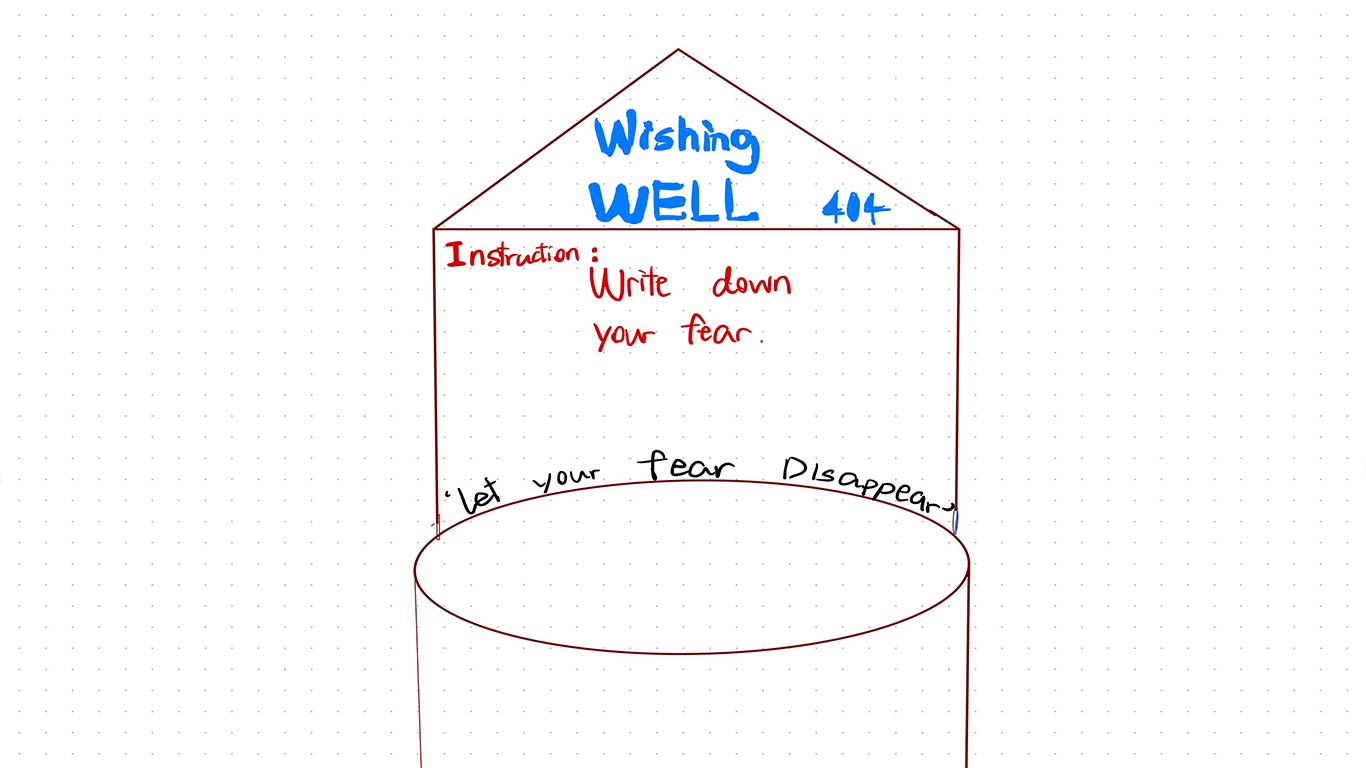 Wishing
WELL 404
Instruction:
Write down
your fear.
'Let your fear Disappear'